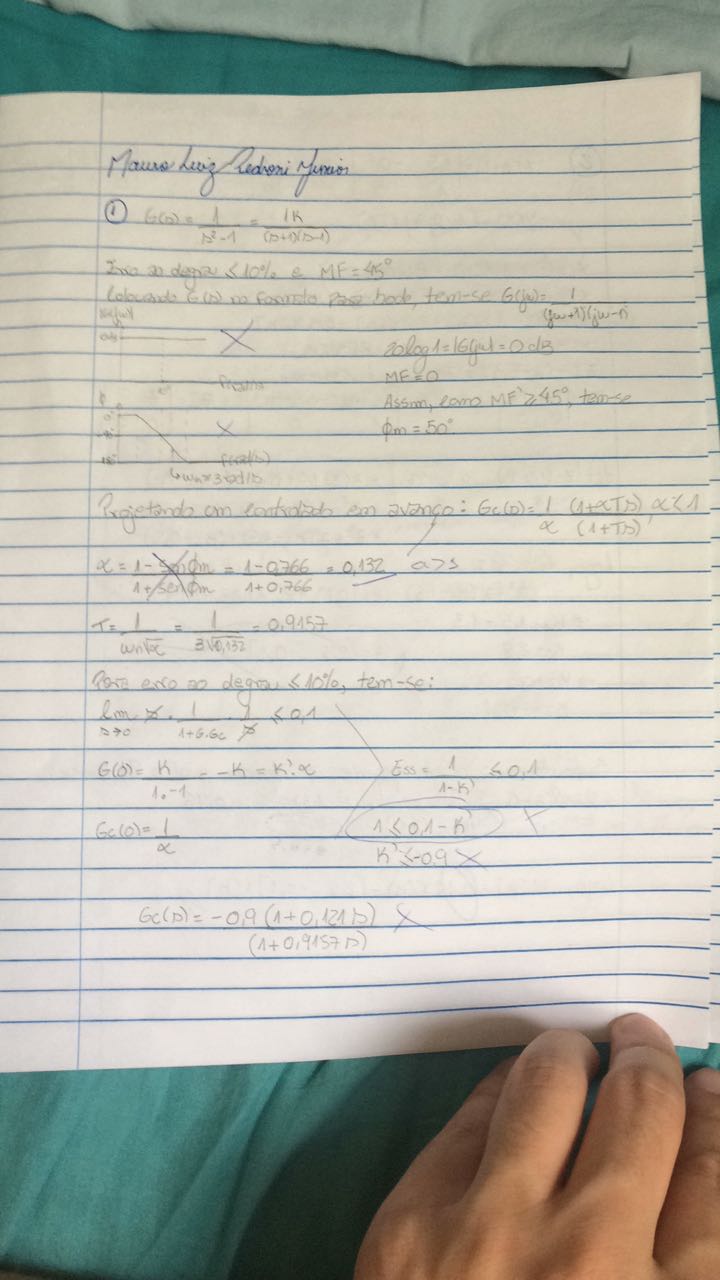 Mauro Luiz Pedroni Junior
① G(s) = 1/(s²-1) = 1K/((s+1)(s-1))
Erro ao degrau ≤ 10% e MF = 45°
Colocando G(s) no formato para bode, tem-se G(jw) = 1/((jw+1)(jw-1))
0dB
20log1 = |G(jw)| = 0 dB
MF = 0
Assim, como MF' ≥ 45°, tem-se
ϕm = 50°
0°
-180°
wn = 3 rad/s
Projetando um controlado em avanço: Gc(s) = 1/α (1+αTs)/(1+Ts), α<1
α = (1-senϕm)/(1+senϕm) = (1-0,766)/(1+0,766) = 0,132
T = 1/(wn√α) = 1/(3√0,132) = 0,9157
Para erro ao degrau ≤ 10%, tem-se:
lim s→0 s · 1/(1+G.Gc) · 1/s ≤ 0,1
G(0) = K/(1·-1) = -K = K'·α
Ess = 1/(1-K') ≤ 0,1
Gc(0) = 1/α
1 ≤ 0,1 - K'
K' ≤ -0,9
Gc(s) = -0,9 (1+0,121s)/(1+0,9157s)